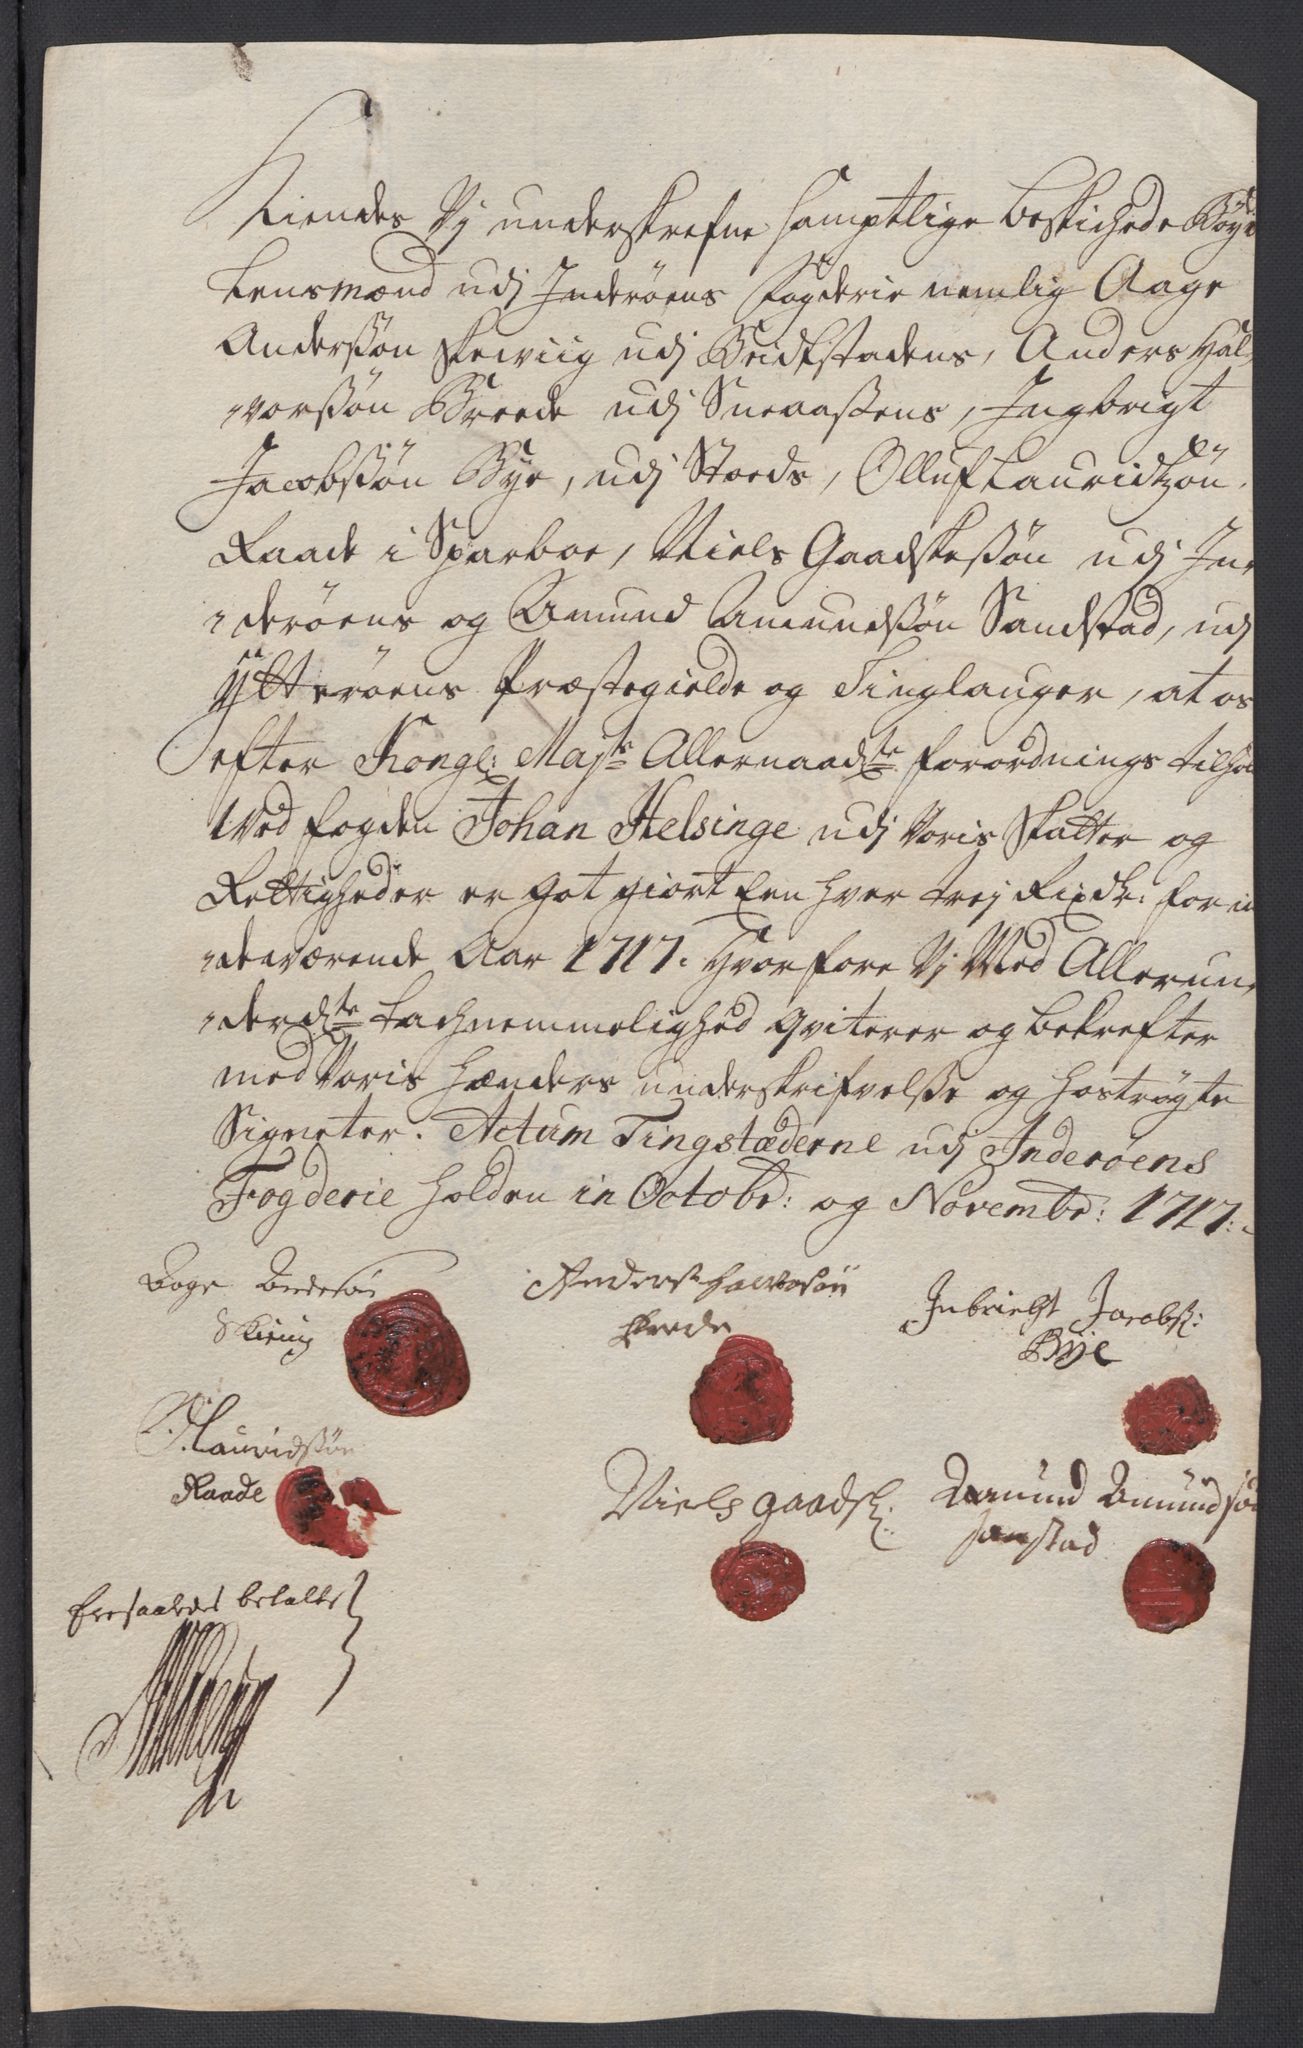 Kiendes Vj underskrefne samptlige beskichede Bøyde
Lensmænd udj Inderøens fogderie nemlig Aage
Anderssøn Skeviig udj Beidstadens, Anders Hal-
-vorssøn Brede udj Sneaassens, Ingbrigt
Jacobssøn Bye, udj Stoeds, Olluf Lauridtzøn
Raade i Sparboe, Niels Gaadskessøn udj In-
-derøens og Amund Amundssøn Sandstad, udj
Ytterøens Præstegielde og Tinglauger, at os
efter Kongl: Majts Allernaadste forordnings tilhol
Ved fogden Johan Helsinge udj Voris Skatter og
Rettigheder er got giort Een hver trej Rixdr: for in
-deværende Aar 1717. Hvorfore Vj Med Allerun-
-derdste tachnemmelighed qviterer og bekrefter
med Voris hænders underskrifvelsse og hostrøgte
Signeter. Actum Tingstæderne udj Inderøens
Fogderie holden in Octobr: og Novembr: 1717:
Aage Andersøn
Skieviig
Anders Halvorsøn
Brede
Inbrieht Jacobs:
Bÿe
O: Lauridssøn
Raade
Niels Gaadsk:
Amund Amundsøn
Sanstad
betalt